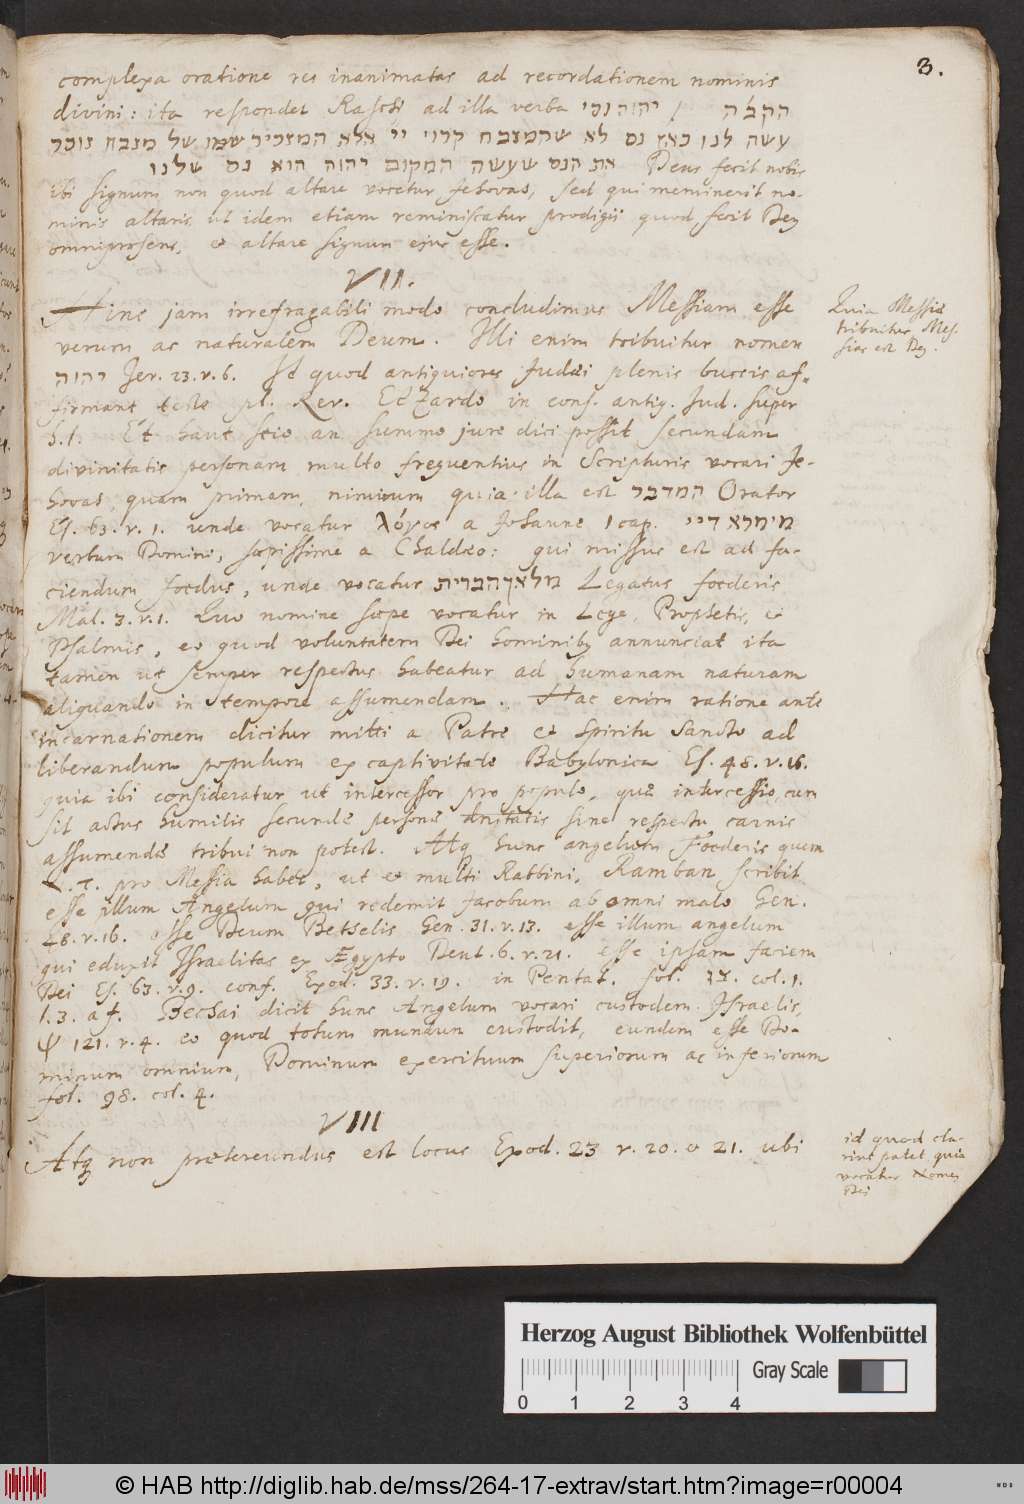 3.
complexa oratione res inanimatas ad recordationem nominis
divini: ita respondet Raschi ad illa verba יהוה נסי / הקב״ה
עשה לנו כאן נס לא שהמזבח קרוי יי אלא המזכיר שמו של מזבח זוכר
את הנס שעשה המקום יהוה הוא נס שלנו Deus fecit nobis
ibi signum non quod altare vocetur Jehovas, sed qui meminerit no-
minis altaris ut idem etiam reminiscatur prodigij quod fecit Deus
omnipræsens, et altare signum ejus esse.
VII.
Hinc jam irrefragabili modo concludimus Messiam esse
verum ac naturalem Deum. Illi enim tribuitur nomen
יהוה Jer. 23. v. 6. Id quod antiquiores Judæi plenis buccis af-
firmant, teste pl. Rev. Edzardo in cons. antiq. Jud. super
h. l. Et haut scio an summo jure dici possit secundam
divinitatis personam multo frequentius in Scripturis vocari Je-
hovas, quam primam, nimirum quia illa est המדבר Orator
Es. 63. v. 1. unde vocatur λόγος a Johanne 1 cap. מימרא דיי
verbum Domini, sæpissime a Chaldæo: qui missus est ad fa-
ciendum foedus, unde vocatus מלאך הברית Legatus foederis
Mal. 3. v. 1. Quo nomine sæpe vocatur in Lege, Prophetis, et
Psalmis, eo quod voluntatem Dei hominibus annunciat ita
tamen ut semper respectus habeatur ad humanam naturam
aliquando in tempore assumendam. Hac enim ratione ante
incarnationem dicitur mitti a Patre et Spiritu Sancto ad
liberandum populum ex captivitate Babylonica Es. 48. v. 16.
quia ibi consideratur ut intercessor pro populo, quæ intercessio, cum
sit actus humilis secundæ personæ dnitatis sine respectu carnis
assumendæ tribui non potest. Atque hunc angelum Foederis quem
N. T. pro Messia habet, ut et multi Rabbini, Ramban scribit
esse illum Angelum qui redemit Jacobum ab omni malo Gen.
48. v. 16. esse Deum Bethelis Gen. 31. v. 13. esse illum angelum
qui eduxit Israelitas ex Ægypto Deut. 6. v. 21. esse ipsam faciem
Dei Es. 63. v. 9. conf. Exod. 33. v. 19. in Pentat. fol. 72. col. 1.
l. 3. a f. Bechai dicit hunc Angelum vocari custodem Israelis,
ψ 121. v. 4. eo quod totum mundum custodit, eundem esse Do-
minum omnium, Dominum exercituum superiorum ac inferiorum
fol. 98. col. 4.
VIII
Atque non prætereundus est locus Exod. 23 v. 20. et 21. ubi
Quia Messiæ
tribuitur, Mes-
sias est Deus.
id quod cla-
rius patet quia
vocatur Nomen
Dei
Herzog August Bibliothek Wolfenbüttel
Gray Scale
0 1 2 3 4
© HAB http://diglib.hab.de/mss/264-17-extrav/start.htm?image=r00004